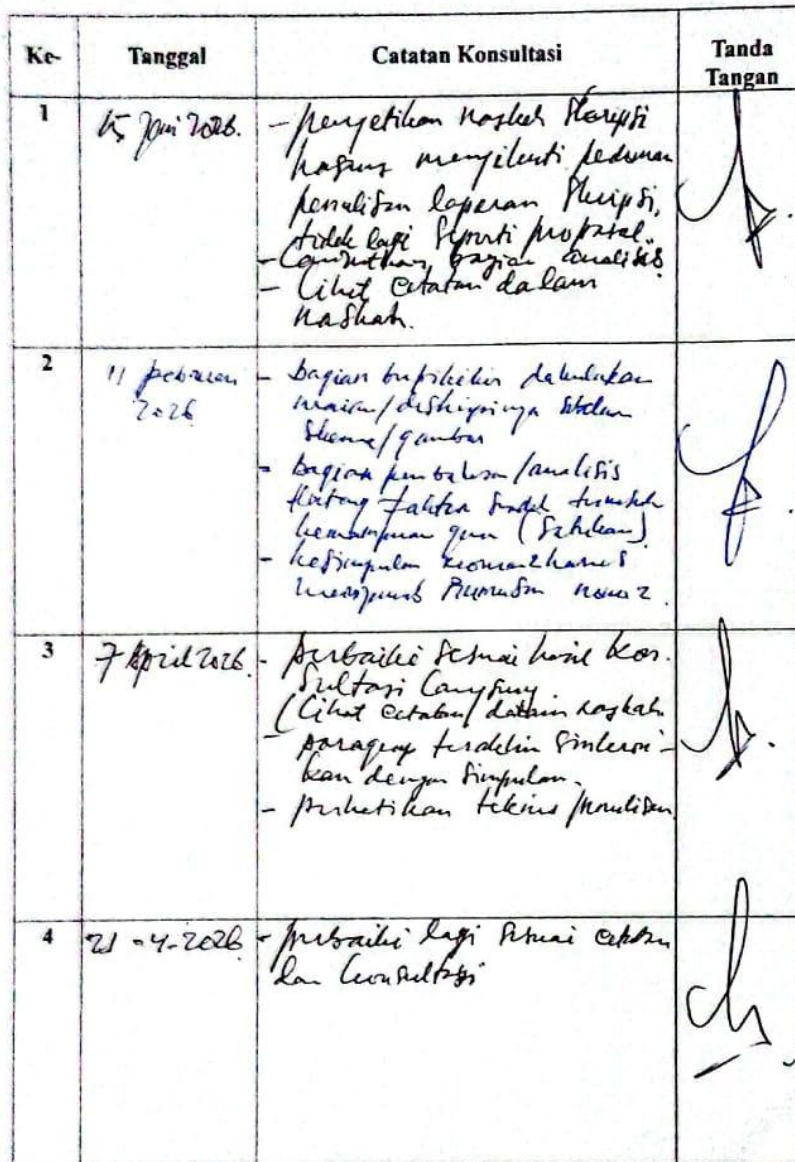 Ke-
Tanggal
Catatan Konsultasi
Tanda
Tangan
1
15 Jani 2026.
- pengetikan naskah Skripsi
harus mengikuti pedoman
penulisan laporan Skripsi,
tidak lagi seperti proposal.
- Lanjutkan bagian analisis
- Lihat catatan dalam
naskah.
2
11 Februari
2026
- bagian berpikir dahulukan
uraian/deskripsinya sebelum
skema/gambar
- bagian pembahasan/analisis
tentang faktor termasuk
kemampuan guru
- kesimpulan nomor 2 harus
menjawab Rumusan nomor 2.
3
7 April 2026.
- perbaiki sesuai hasil kon-
sultasi langsung
(Lihat catatan) dalam naskah
- paragraf terakhir sinkron-
kan dengan simpulan.
- perhatikan teknis/penulisan
4
21-4-2026
- perbaiki lagi sesuai catatan
dan konsultasi